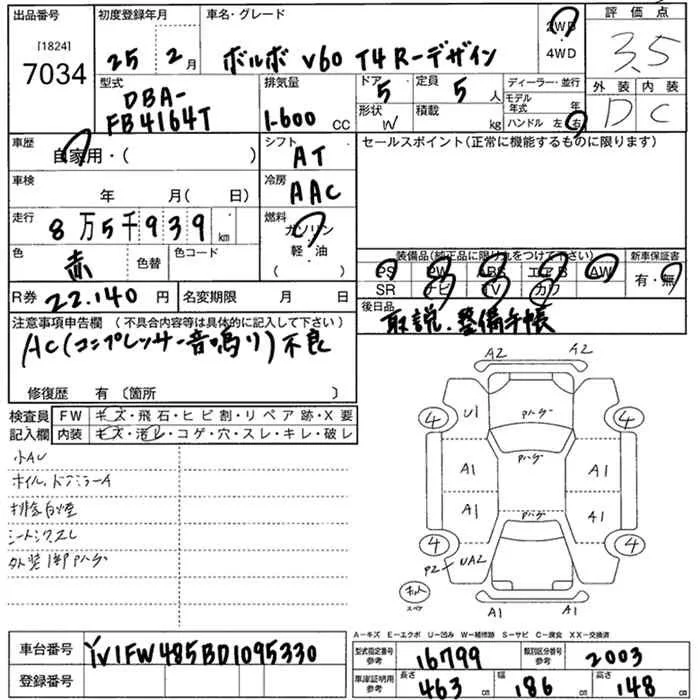 出品番号 初度登録年月 車名・グレード 2WD 評価点
[1824]
7034 25 2月 ボルボ V60 T4 R-デザイン 4WD 3.5
型式 排気量 ドア 定員 ディーラー・並行 外装 内装
DBA-
FB4164T 1-600 CC 5 5人 モデル年式 年 D C
形状 W 積載 kg ハンドル 左 右
車歴 自家用・( ) シフト AT セールスポイント(正常に機能するものに限ります)
車検 年 月( 日) 冷房 AAC
走行 8万5千939km 燃料 ガソリン
軽・油
( )
色 赤 色替 色コード
装備品(純正品に限り丸をつけて下さい) 新車保証書
PS PW ABS エアB AW 有・無
SR ナビ TV カワ
R券 22.140円 名変期限 月 日 後日品 取説.整備手帳
注意事項申告欄 (不具合内容等は具体的に記入して下さい)
AC(コンプレッサー音鳴り)不良
修復歴 有 〔箇所 〕
検査員 FW キズ・飛石・ヒビ割・リペア跡・X要
記入欄 内装 キズ・汚レ・コゲ・穴・スレ・キレ・破レ
小AU
ホイル、ドアミラーA
排気白煙
シートシワスレ
外装1部Pハゲ
A2 A2
4 U1 Pハゲ 4
Pハゲ
A1 A1
A1 Pハゲ A1
4 P2 UA2 4
スペア
A1 A1
A-キズ E-エクボ U-凹み W-補修跡 S-サビ C-腐食 XX-交換済
車台番号 YV1FW485BD1095330
登録番号
型式指定番号 参考 16799 類別区分番号 参考 2003
車庫証明用 参考 長さ 463cm 幅 186cm 高さ 148cm